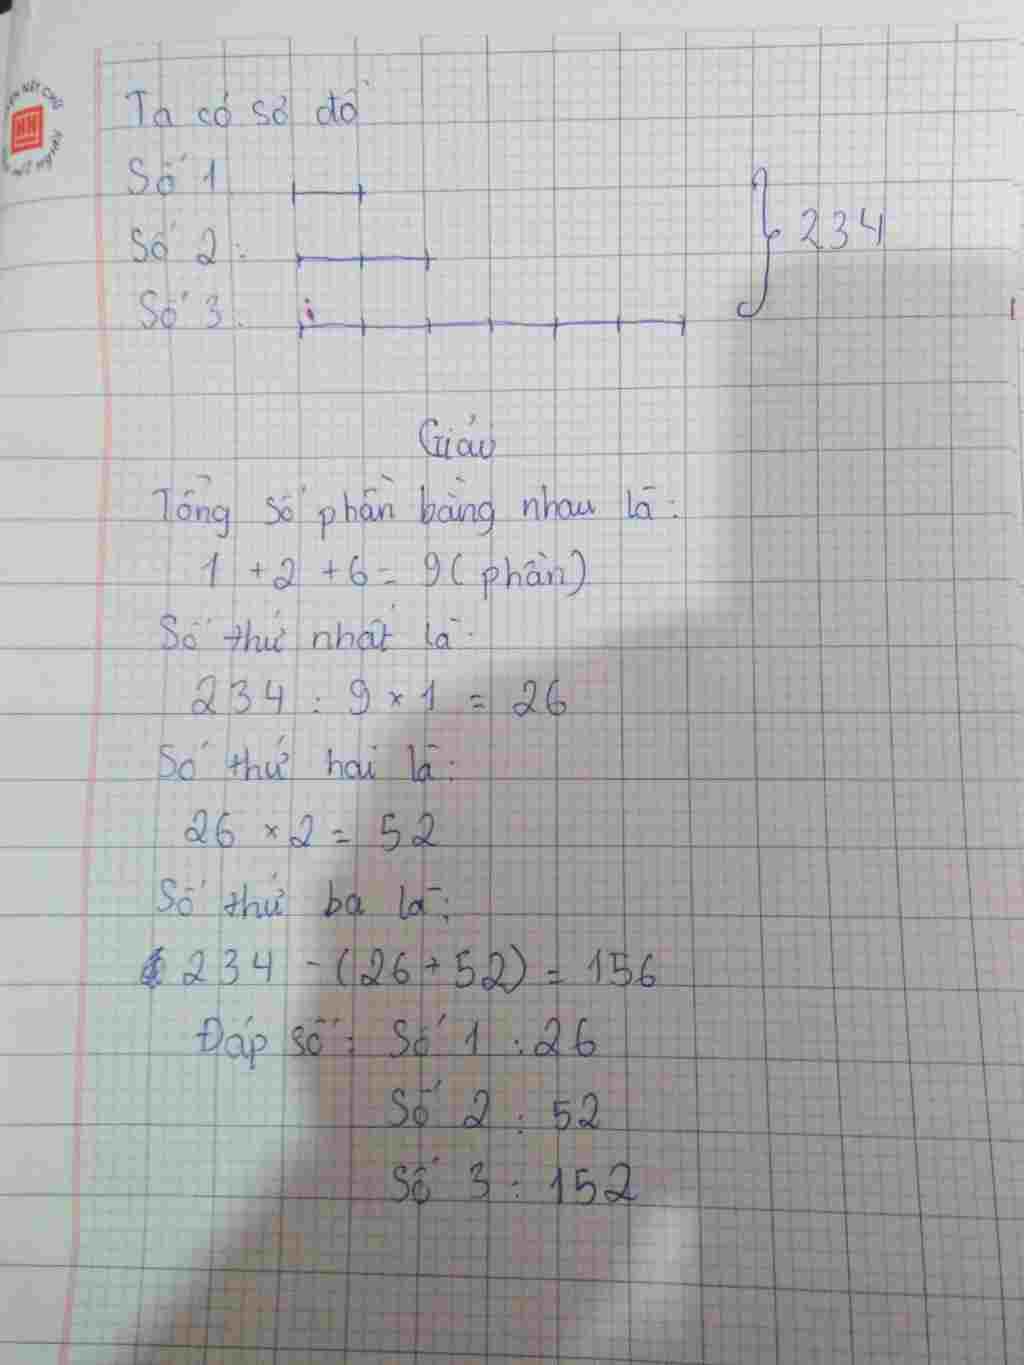 Ta có sơ đồ
Số 1
Số 2:
Số 3:
234
Giải
Tổng số phần bằng nhau là:
1 + 2 + 6 = 9 (phần)
Số thứ nhất là:
234 : 9 × 1 = 26
Số thứ hai là:
26 × 2 = 52
Số thứ ba là:
234 - (26 + 52) = 156
Đáp số: Số 1 : 26
Số 2 : 52
Số 3 : 152